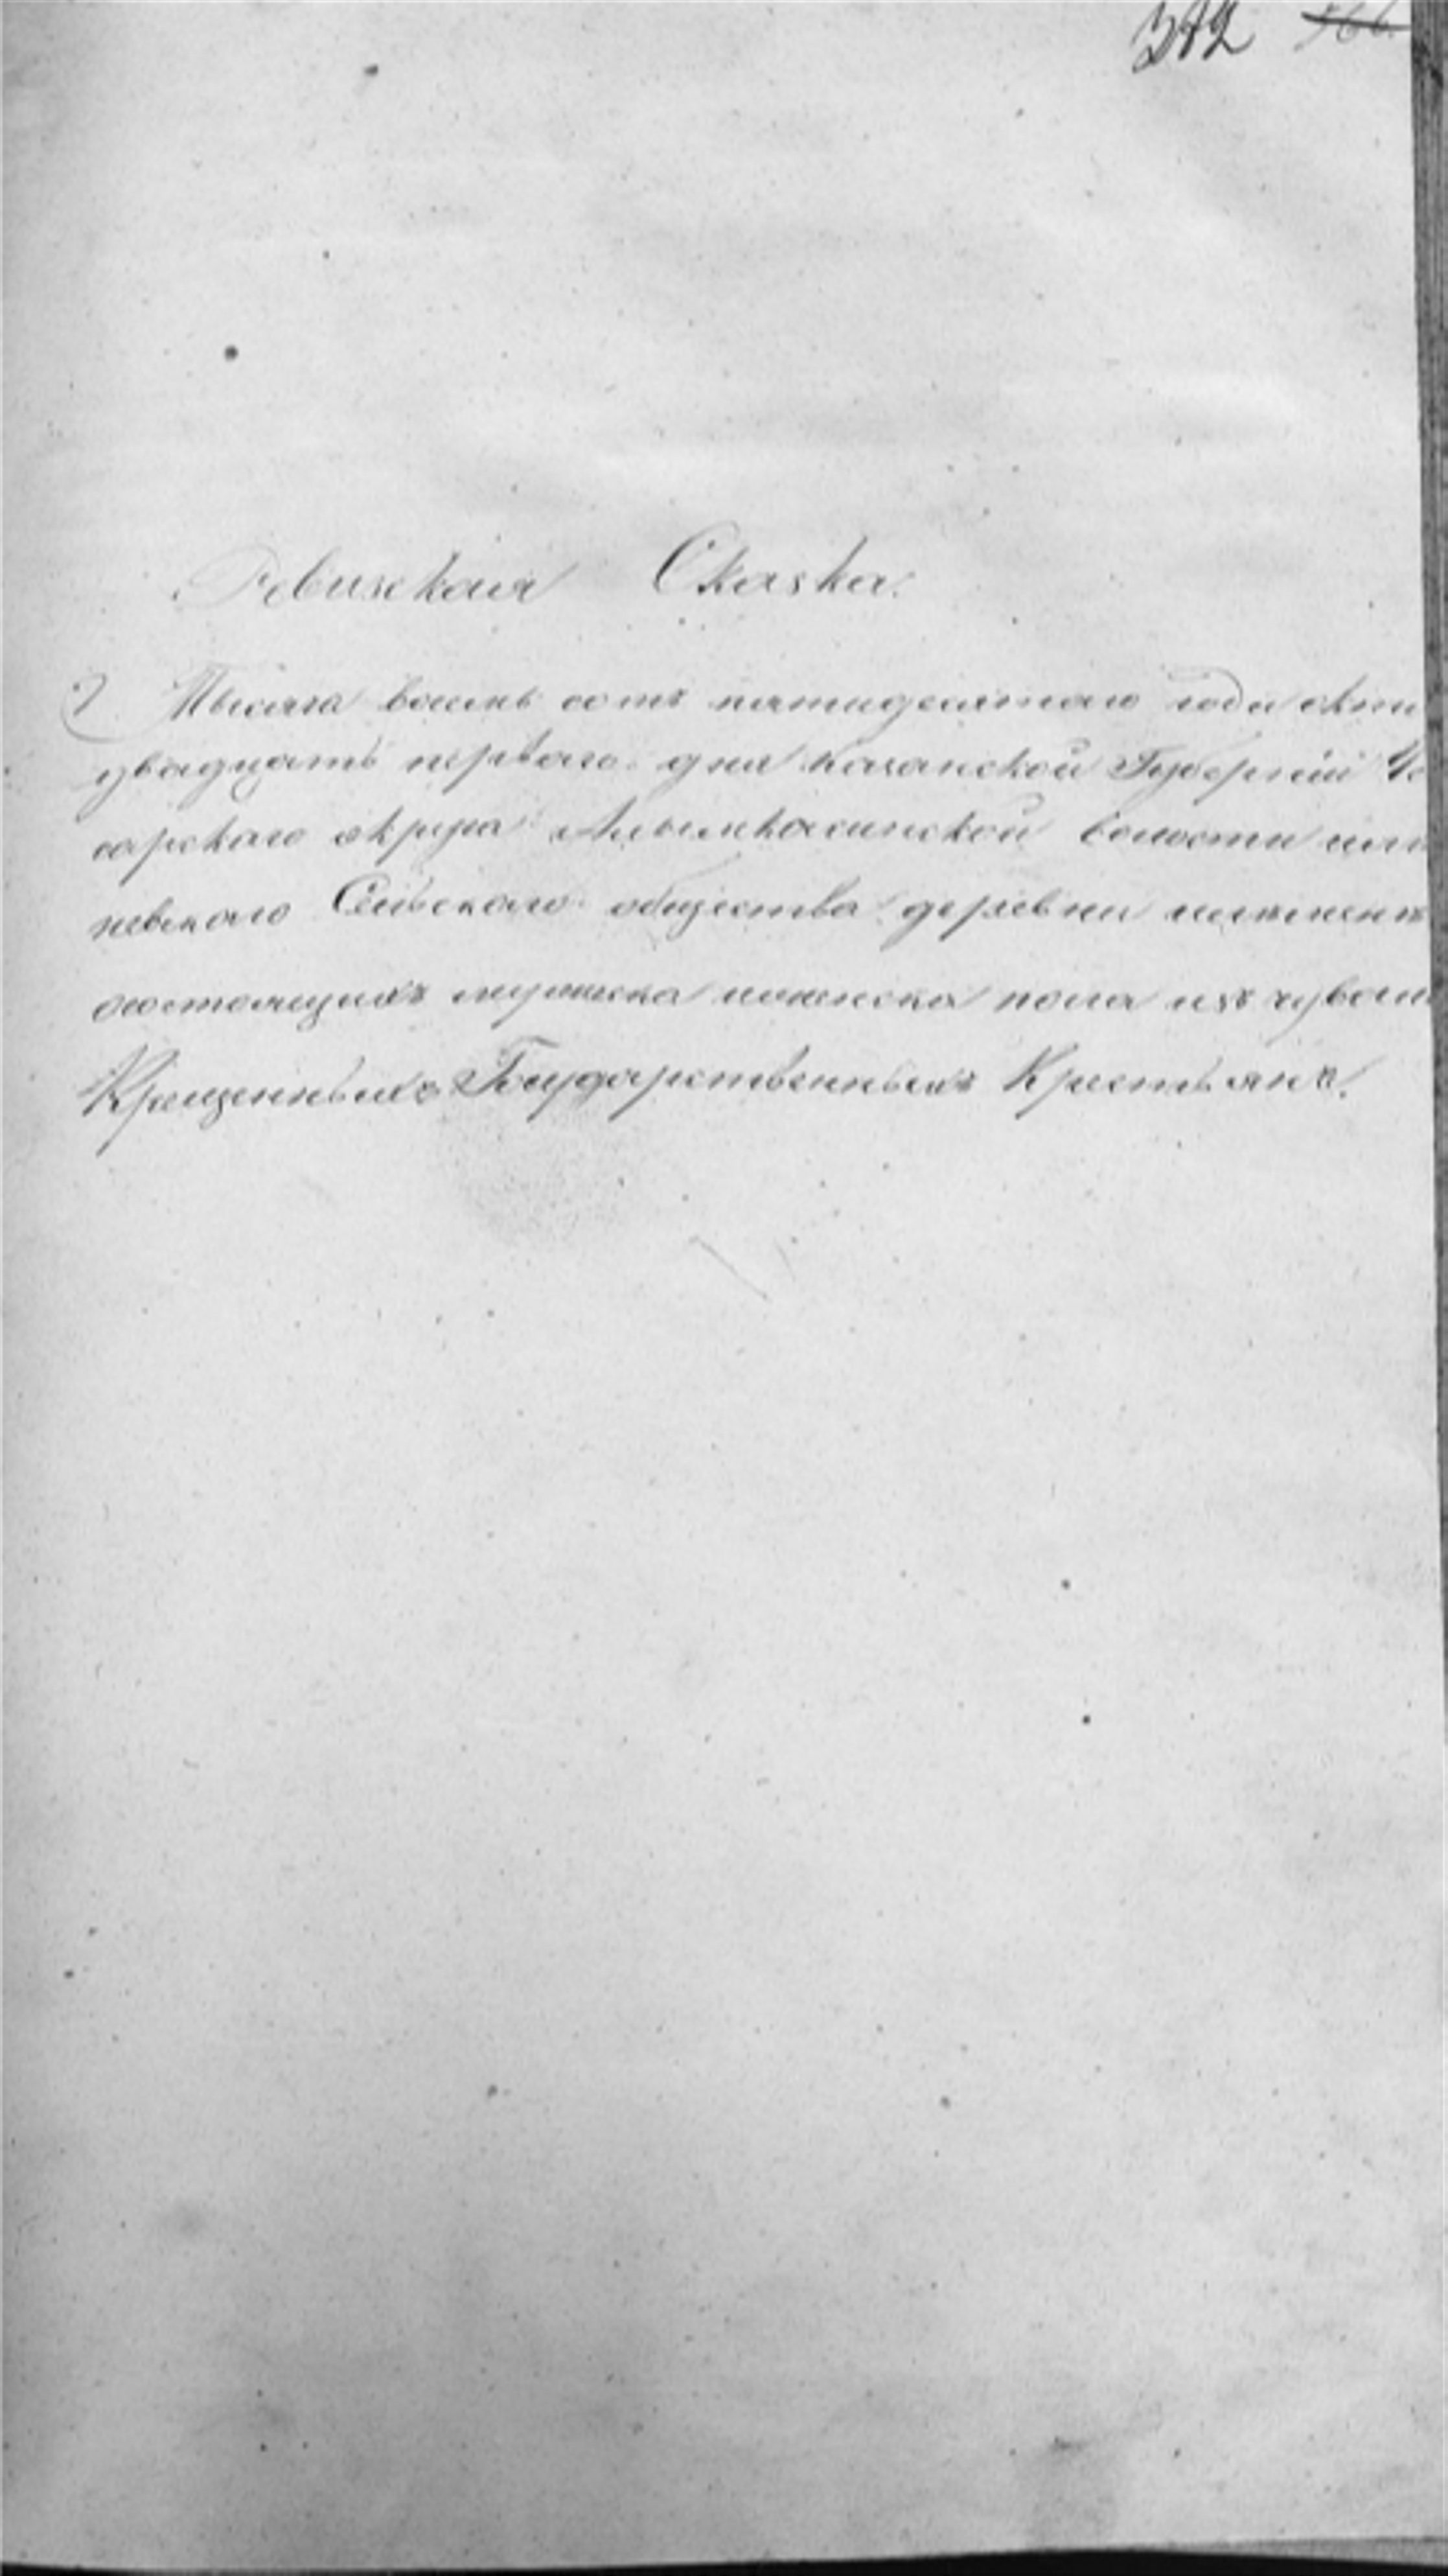 372
Ревизская Сказка.
Тысяча восемь сотъ пятидесятаго года октя
двадцать перваго дня казанской Губерніи Че
сарскаго округа Алымкасинской волости
невскаго Сельскаго общества деревни
состоящихъ мужеска иженска пола изъ чуваш
Крещенныхъ Государственныхъ Крестьянъ.